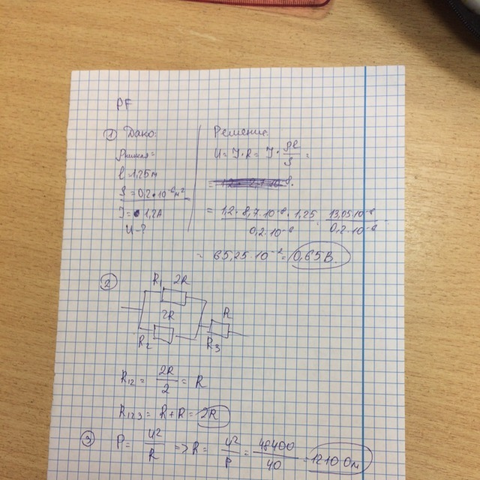 РГ
① Дано:
l = 1,25м
S = 0,2·10⁻⁶м²
I = 1,2А
U - ?
Решение:
U = I·R = I · ρl/S =
= 1,2 · 8,7·10⁻⁸ · 1,25 / 0,2·10⁻⁶ = 13,05·10⁻⁸ / 0,2·10⁻⁶
= 65,25·10⁻² = 0,65В
②
R₁ 2R
2R R
R₂ R₃
R₁₂ = 2R/2 = R
R₁₂₃ = R + R = 2R
③ P = U²/R => R = U²/P = 48400/40 = 1210 Ом